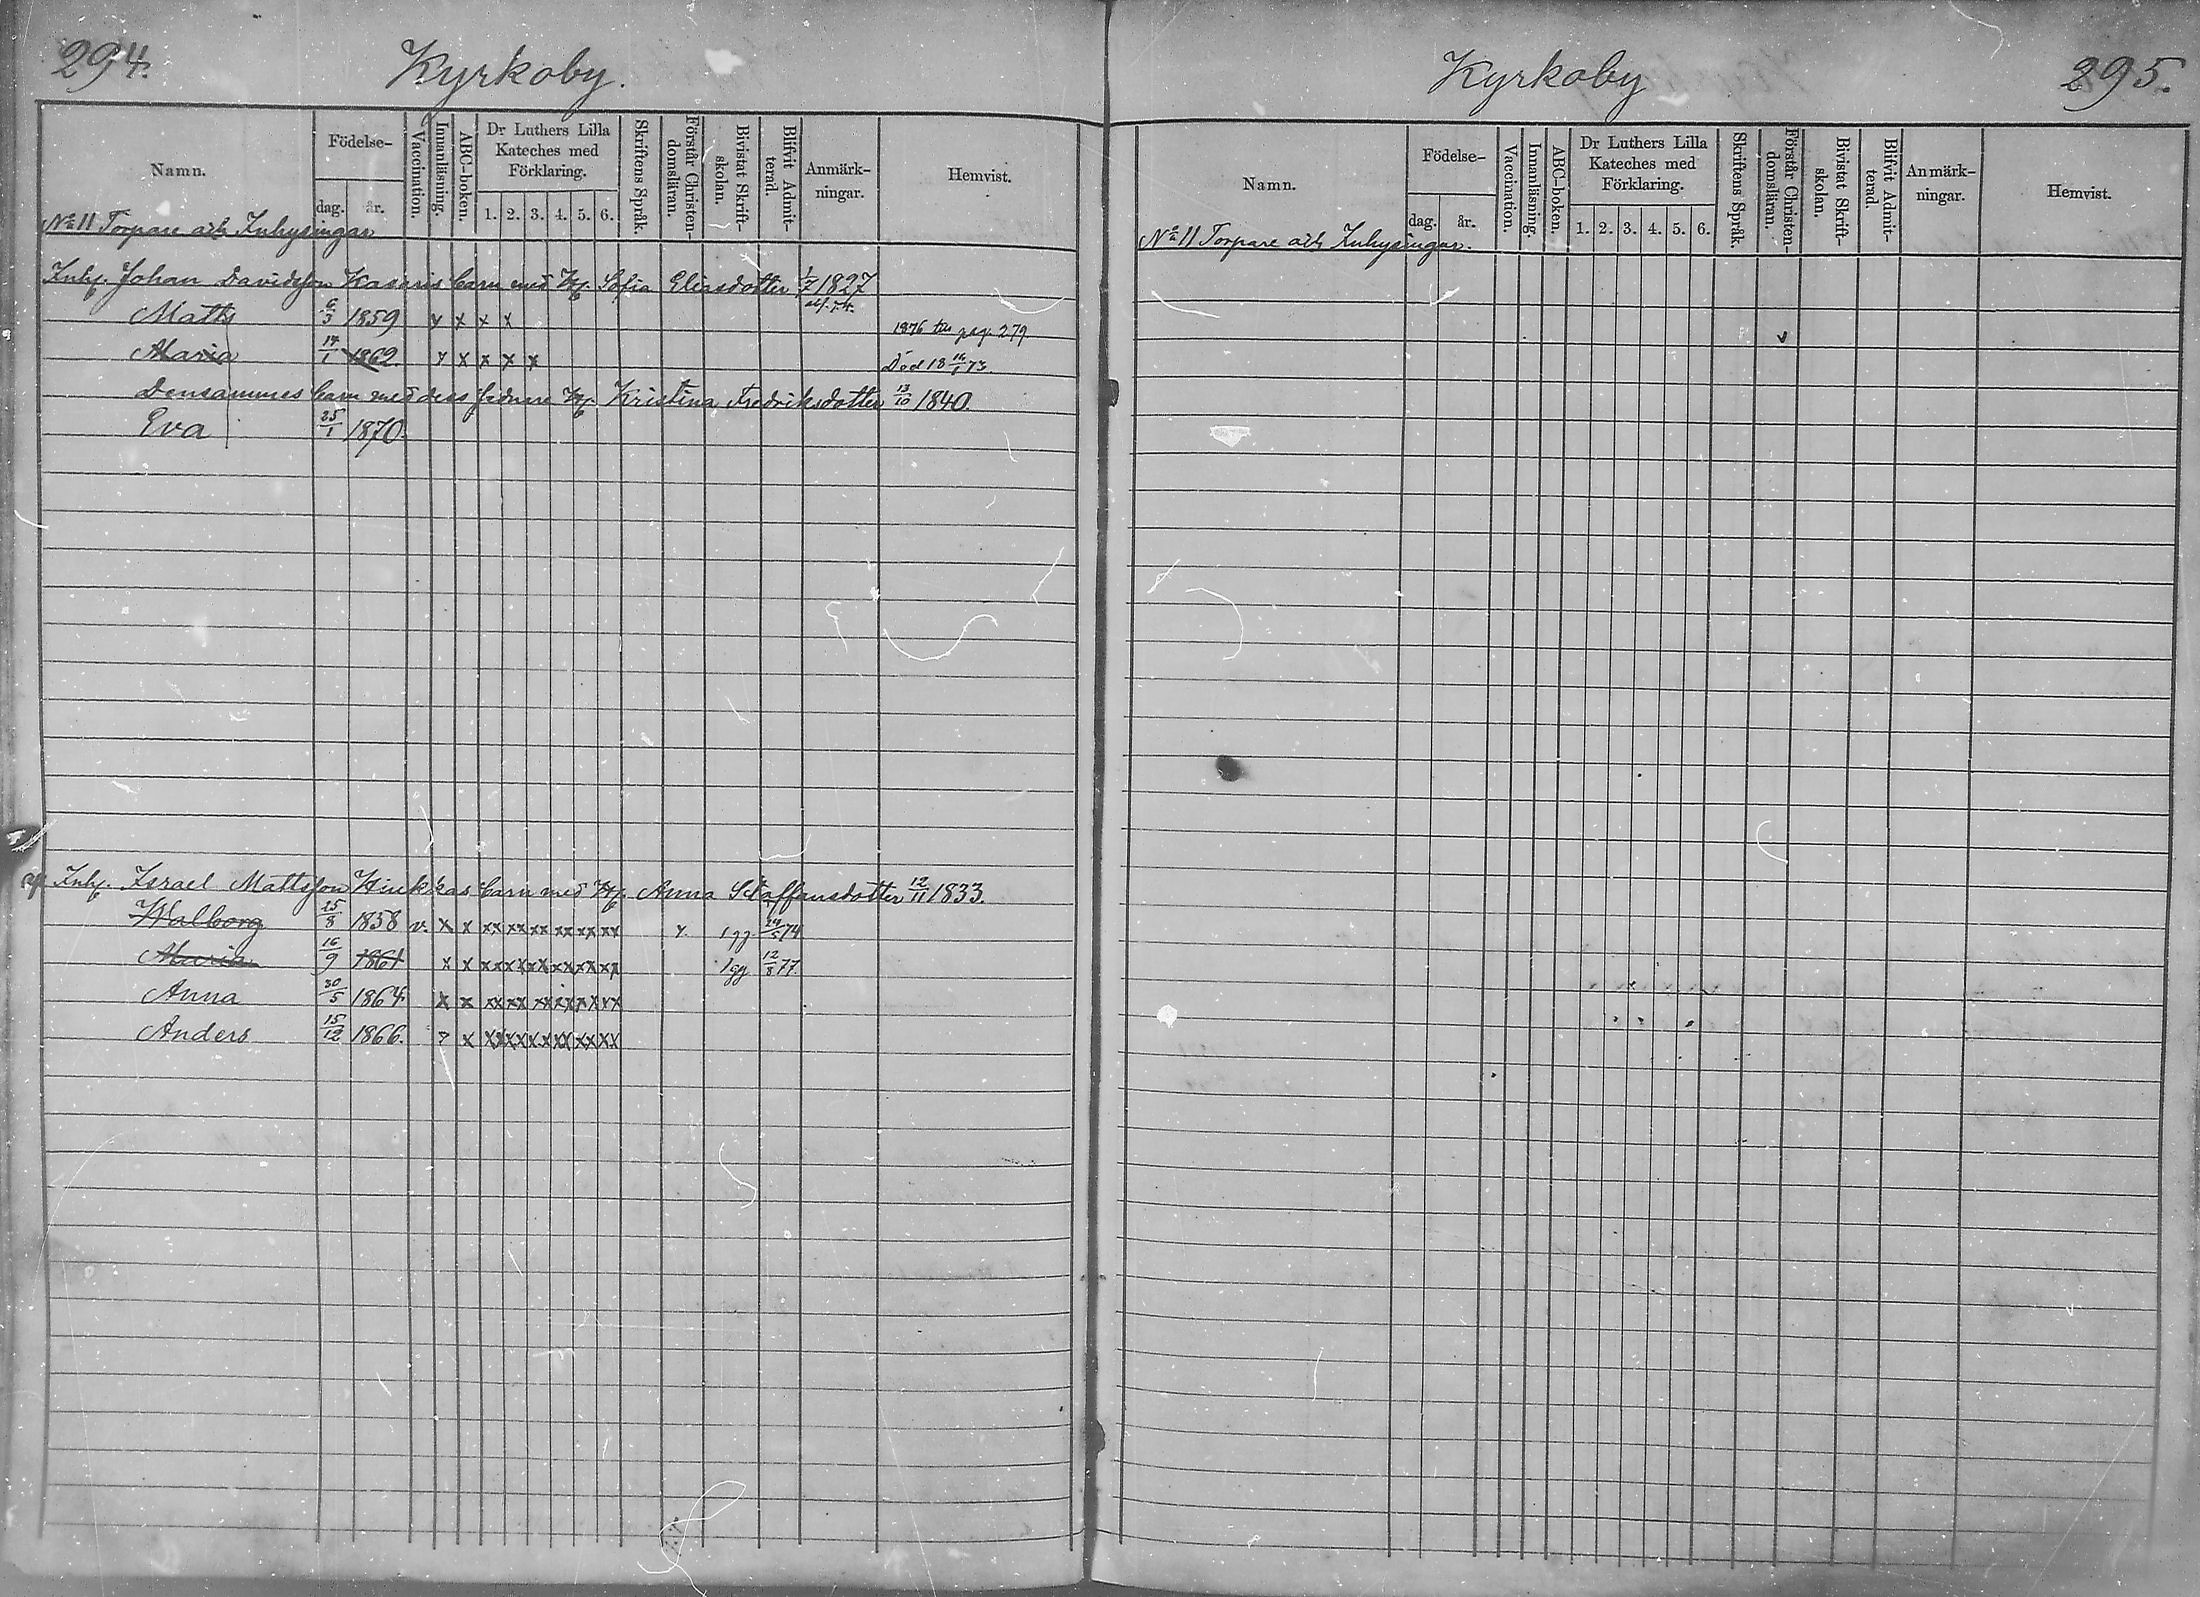 294.
Kyrkoby.
Namn.
Födelse-
dag.
år.
Vaccination.
Innanläsning.
ABC-boken.
Dr Luthers Lilla
Kateches med
Förklaring.
1. 2. 3. 4. 5. 6.
Skriftens Språk.
Förstår Christen-
domsläran.
Bivistat Skrift-
skolan.
Blifvit Admit-
terad.
Anmärk-
ningar.
Hemvist.
No 11 Torpare och Inhysingar
Inh. Johan Davidsson Kasaris barn med H. Sofia Eliasdotter 1/7 1827
Matts 6/3 1859 x x x x 1876 till pag. 279
Maria 14/1 1862. x x x x x Död 18 16/1 73.
Densammes barn med dess sednare H. Kristina Fredriksdotter 13/10 1840.
Eva 25/1 1870.
Inh. Israel Mattsson Hiukkas barn med H. Anna Staffansdotter 12/11 1833.
Walborg 25/8 1858 v. x x xx xx xx xx xx xx x. 1 gg 24/5 74
Maria 16/9 1861 x x xx xx xx xx xx xx 1 gg 12/8 77
Anna 30/5 1864 x x xx xx xx xx xx xx
Anders 15/12 1866. x x xx xx xx xx xx xx
Kyrkoby
295.
Namn.
Födelse-
dag.
år.
Vaccination.
Innanläsning.
ABC-boken.
Dr Luthers Lilla
Kateches med
Förklaring.
1. 2. 3. 4. 5. 6.
Skriftens Språk.
Förstår Christen-
domsläran.
Bivistat Skrift-
skolan.
Blifvit Admit-
terad.
Anmärk-
ningar.
Hemvist.
No 11 Torpare och Inhysingar.